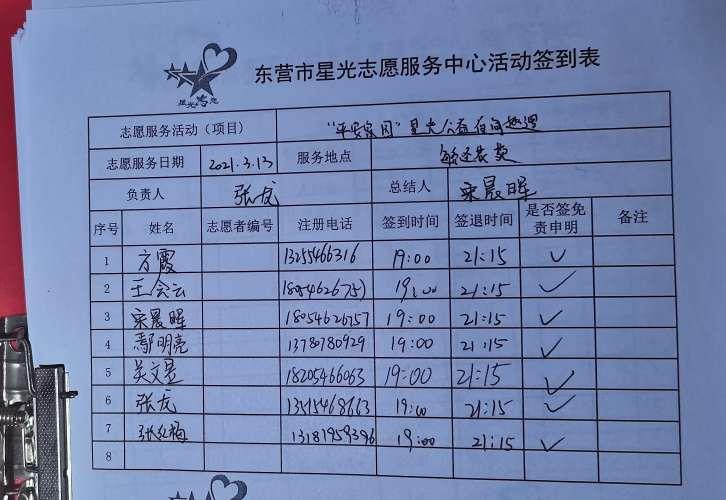 星光志愿
东营市星光志愿服务中心活动签到表
志愿服务活动（项目） "平安家园"星光公益夜间巡逻
志愿服务日期 2021.3.13 服务地点
负责人 张龙 总结人 宋晨晖
序号 姓名 志愿者编号 注册电话 签到时间 签退时间 是否签免责申明 备注
1 方霞 13255466316 19:00 21:15 ✓
2 王会云 19:00 21:15 ✓
3 宋晨晖 18054626757 19:00 21:15 ✓
4 鄢明亮 13780780929 19:00 21:15 ✓
5 吴文昱 18205466063 19:00 21:15 ✓
6 张龙 19:00 21:15 ✓
7 张红梅 13181959396 19:00 21:15 ✓
8